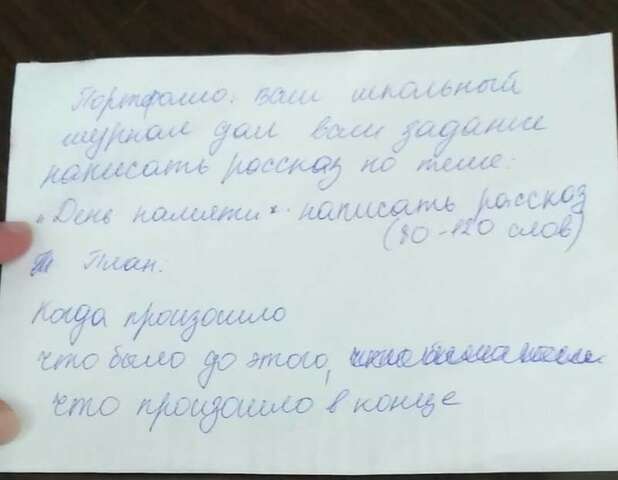 Портфолио: ваш школьный
журнал дал вам задание
написать рассказ по теме:
"День памяти". написать рассказ
(80-120 слов)
План:
Когда произошло
что было до этого,
что произошло в конце